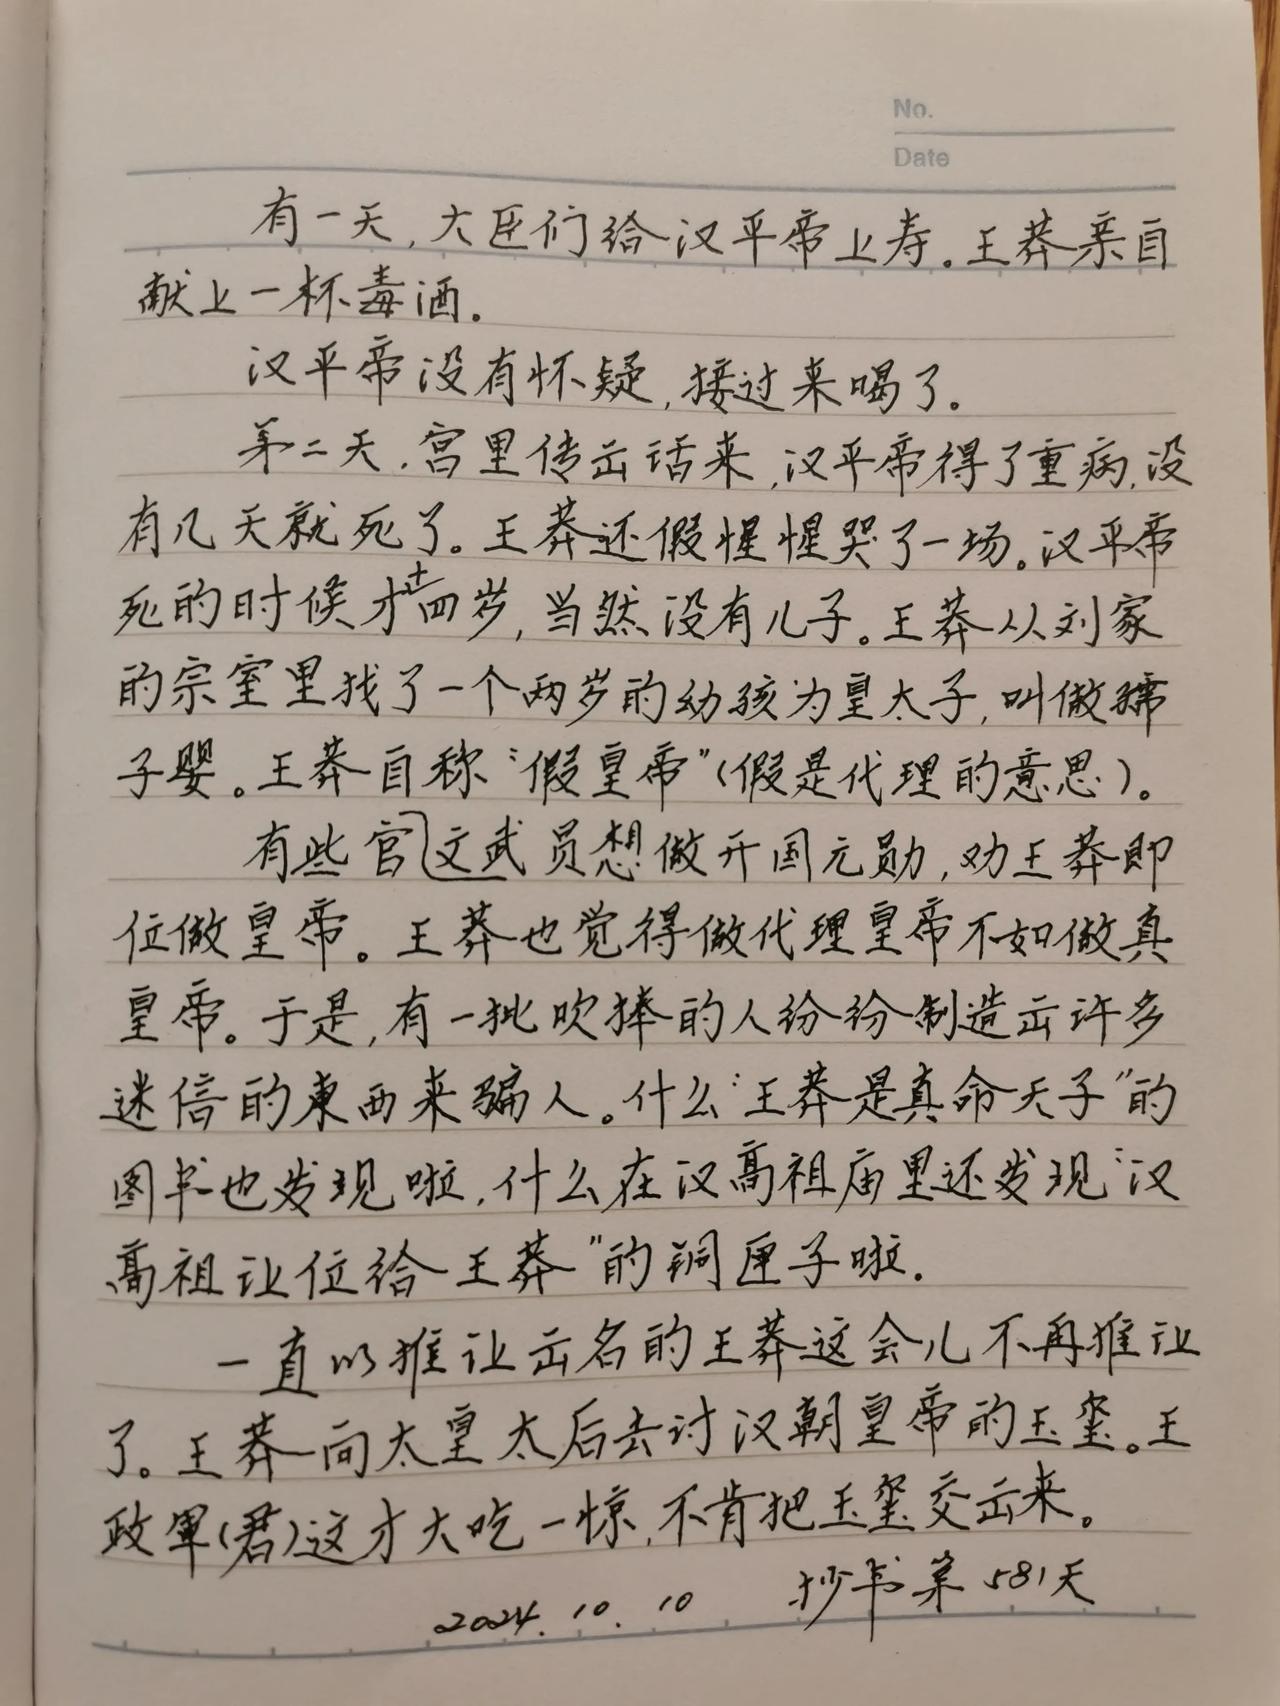 No.
Date
有一天,大臣们给汉平帝上寿。王莽亲自
献上一杯毒酒。
汉平帝没有怀疑,接过来喝了。
第二天,宫里传出话来,汉平帝得了重病,没
有几天就死了。王莽还假惺惺哭了一场。汉平帝
死的时候才十四岁,当然没有儿子。王莽从刘家
的宗室里找了一个两岁的幼孩为皇太子,叫做孺
子婴。王莽自称“假皇帝”(假是代理的意思)。
有些官文武员想做开国元勋,劝王莽即
位做皇帝。王莽也觉得做代理皇帝不如做真
皇帝。于是,有一批吹捧的人纷纷制造出许多
迷信的東西来骗人。什么“王莽是真命天子”的
图书也发现啦,什么在汉高祖庙里还发现“汉
高祖让位给王莽”的铜匣子啦。
一直以推让出名的王莽这会儿不再推让
了。王莽向太皇太后去讨汉朝皇帝的玉玺。王
政軍(君)这才大吃一惊,不肯把玉玺交出来。
2024.10.10 抄书第581天